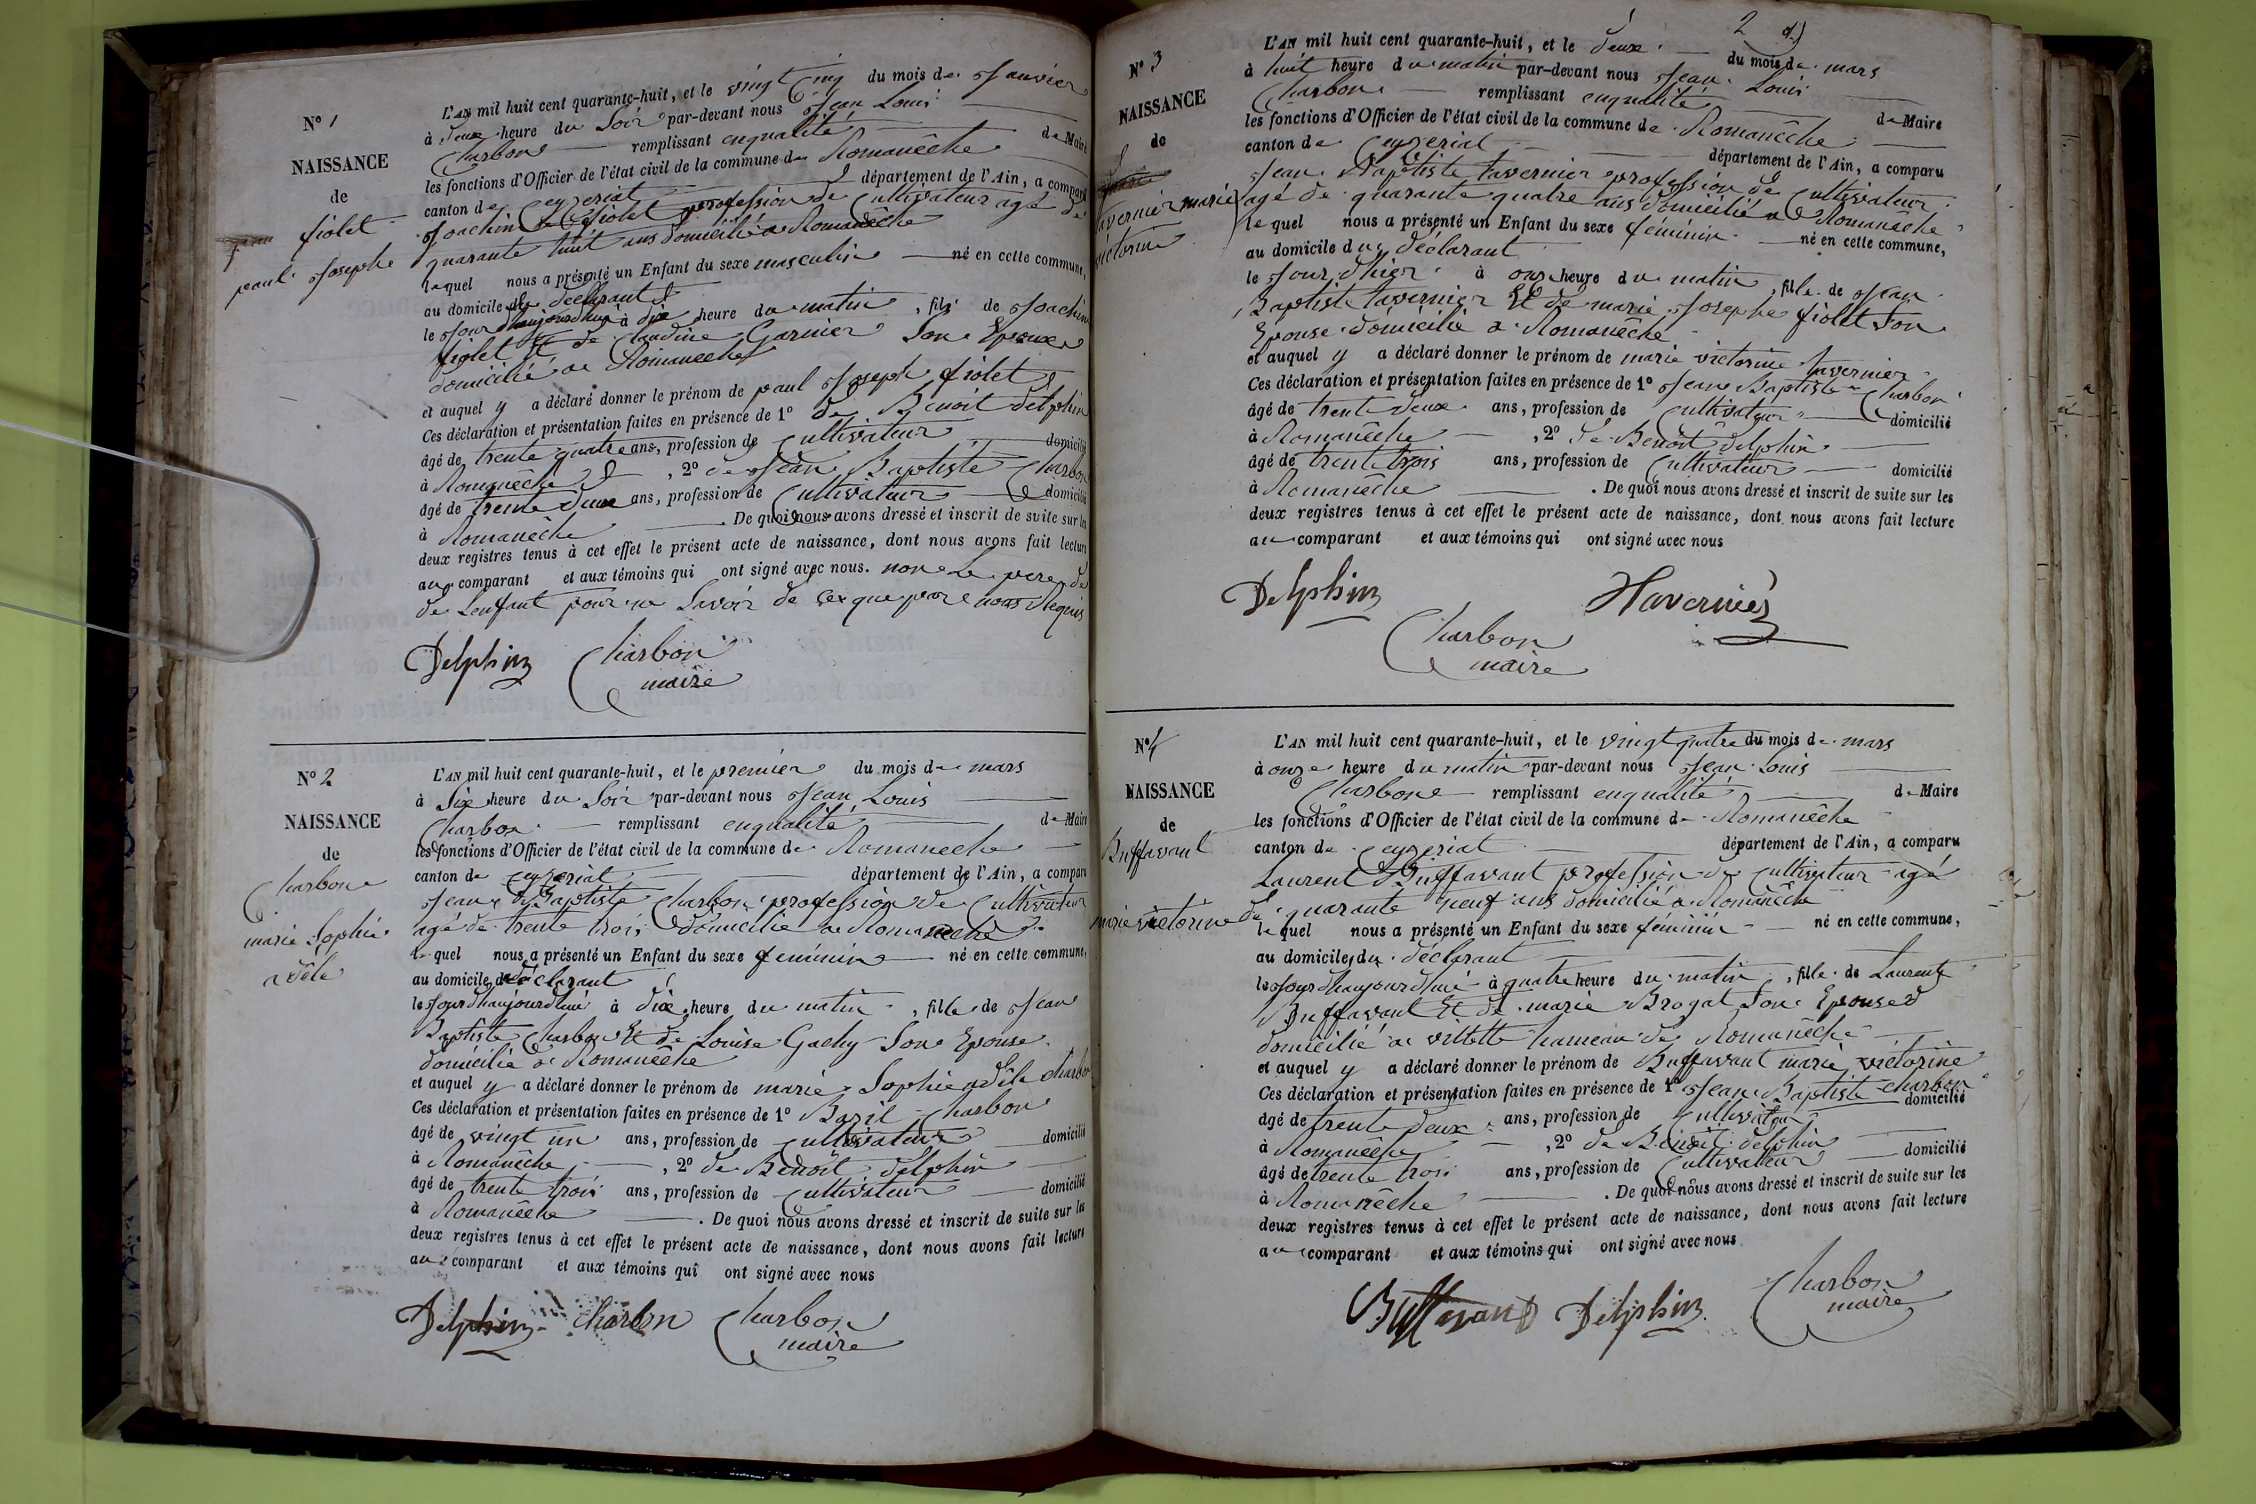 N° 1
NAISSANCE
de
fiolet
paul Josephe
L'AN mil huit cent quarante-huit, et le vingt Cinq du mois de Janvier
à deux heure du Soir par-devant nous Jean Louis
Charbon remplissant enqualité de Maire
les fonctions d'Officier de l'état civil de la commune de Romanêche
canton de Ceyzeriat département de l'Ain, a comparu
Joachin fiolet profession de Cultivateur agé de
quarante huit ans domicilié a Romanêche
lequel nous a présenté un Enfant du sexe masculin né en cette commune,
au domicile du déclarant
le Jour dhaujourdhui à dix heure du matin, fils de Joachin
fiolet Et de Claudine Garnier Son Epouse
domicilié a Romaneche
et auquel y a déclaré donner le prénom de paul Joseph fiolet
Ces déclaration et présentation faites en présence de 1° de Benoit delphin
âgé de trente quatre ans, profession de Cultivateur domicilié
à Romanêche, 2° de Jean Baptiste Charbon
âgé de trente deux ans, profession de Cultivateur domicilié
à Romanêche. De quoi nous avons dressé et inscrit de suite sur les
deux registres tenus à cet effet le présent acte de naissance, dont nous avons fait lecture
au comparant et aux témoins qui ont signé avec nous. non Le pere de
de Lenfant pour ne Savoir de ce que par nous Requis
Delphin Charbon
maire
N° 2
NAISSANCE
de
Charbon
marie Sophie
adêle
L'AN mil huit cent quarante-huit, et le premier du mois de mars
à Six heure du Soir par-devant nous Jean Louis
Charbon remplissant enqualité de Maire
les fonctions d'Officier de l'état civil de la commune de Romaneche
canton de Ceyzeriat département de l'Ain, a comparu
Jean Baptiste Charbon profession de Cultivateur
agé de trente trois domicilié a Romaneche
lequel nous a présenté un Enfant du sexe féminin né en cette commune,
au domicile du déclarant
le Jour dhaujourdhui à dix heure du matin, fille de Jean
Baptiste Charbon Et de Louise Gachy Son Epouse
domicilié a Romanêche
et auquel y a déclaré donner le prénom de marie Sophie adêle charbon
Ces déclaration et présentation faites en présence de 1° Bazil Charbon
âgé de vingt un ans, profession de Cultivateur domicilié
à Romanêche, 2° de Benoît delphin
âgé de trente trois ans, profession de Cultivateur domicilié
à Romanêche. De quoi nous avons dressé et inscrit de suite sur les
deux registres tenus à cet effet le présent acte de naissance, dont nous avons fait lecture
au comparant et aux témoins qui ont signé avec nous
Delphin charbon Charbon
maire
2
N° 3
NAISSANCE
de
tavernier marie
victorine
L'AN mil huit cent quarante-huit, et le deux du mois de mars
à huit heure du matin par-devant nous Jean Louis
Charbon remplissant enqualité de Maire
les fonctions d'Officier de l'état civil de la commune de Romanêche
canton de Ceyzeriat département de l'Ain, a comparu
Jean Baptiste tavernier profession de Cultivateur
agé de quarante quatre ans domicilié a Romanêche
lequel nous a présenté un Enfant du sexe féminin né en cette commune,
au domicile du déclarant
le Jour dhier à onze heure du matin, fille de Jean
Baptiste tavernier Et de marie Josephe fiolet Son
Epouse domicilié a Romanêche
et auquel y a déclaré donner le prénom de marie victorine tavernier
Ces déclaration et présentation faites en présence de 1° Jean Baptiste Charbon
âgé de trente deux ans, profession de Cultivateur domicilié
à Romanêche, 2° de Benoit delphin
âgé de trente trois ans, profession de Cultivateur domicilié
à Romanêche. De quoi nous avons dressé et inscrit de suite sur les
deux registres tenus à cet effet le présent acte de naissance, dont nous avons fait lecture
au comparant et aux témoins qui ont signé avec nous
Delphin Tavernier
Charbon
maire
N° 4
NAISSANCE
de
Buffavant
marie victorine
L'AN mil huit cent quarante-huit, et le vingt quatre du mois de mars
à onze heure du matin par-devant nous Jean Louis
Charbon remplissant enqualité de Maire
les fonctions d'Officier de l'état civil de la commune de Romanêche
canton de Ceyzeriat département de l'Ain, a comparu
Laurent Buffavant profession de Cultivateur agé
de quarante neuf ans domicilié a Romanêche
lequel nous a présenté un Enfant du sexe féminin né en cette commune,
au domicile du déclarant
le Jour dhaujourdhui à quatre heure du matin, fille de Laurent
Buffavant Et de marie Brogat Son Epouse
domicilié a villette hameau de Romanêche
et auquel y a déclaré donner le prénom de Buffavant marie victorine
Ces déclaration et présentation faites en présence de 1° Jean Baptiste charbon
âgé de trente deux ans, profession de Cultivateur domicilié
à Romanêche, 2° de Benoit delphin
âgé de trente trois ans, profession de Cultivateur domicilié
à Romanêche. De quoi nous avons dressé et inscrit de suite sur les
deux registres tenus à cet effet le présent acte de naissance, dont nous avons fait lecture
au comparant et aux témoins qui ont signé avec nous
Buffavand Delphin Charbon
maire